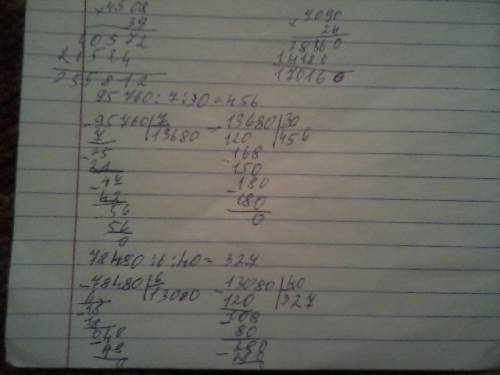 4508 7090
39 24
40572 28360
14180
170160
95760:7:30=456
95760 7 13680 30
7 13680 120 456
25 168
21 150
47 180
42 180
56 0
56
0
78480:6:40=327
78480 6 13080 40
6 13080 120 327
18 108
18 80
048 280
48 280
0